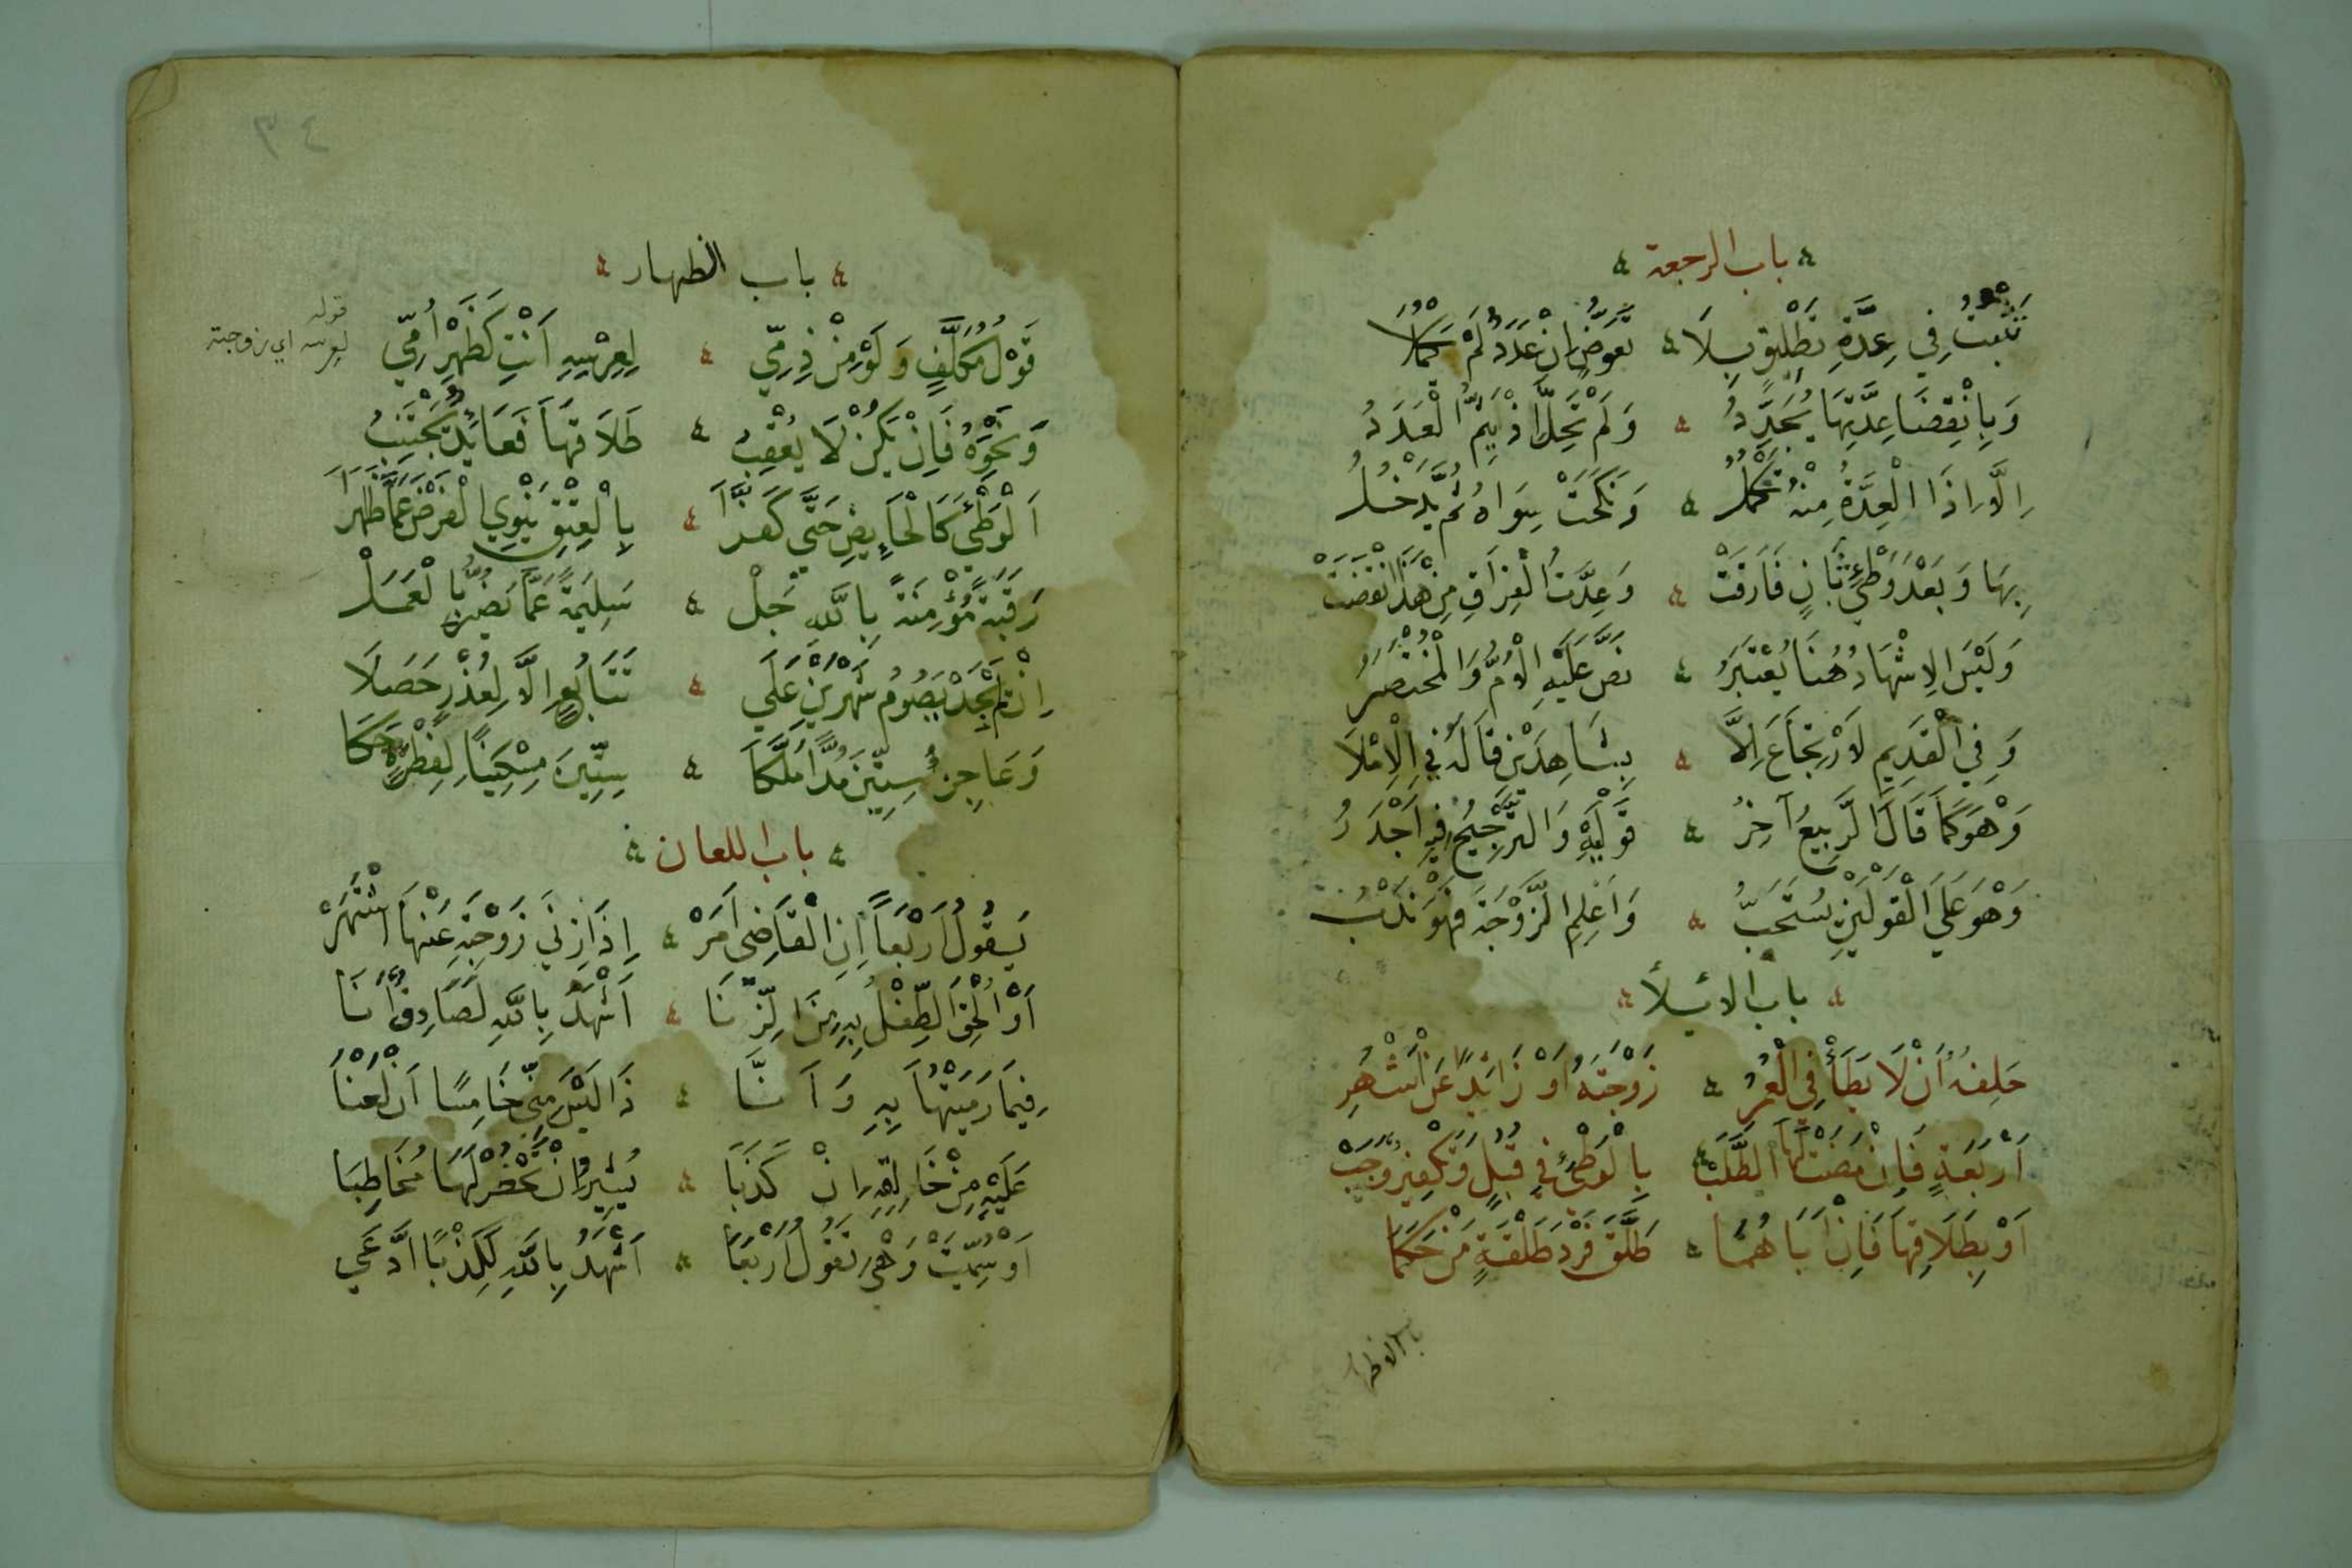 باب الرجعة
تَثْبُتُ فِي عِدَّةِ تَطْلِيقٍ بِلَا تَعَوُّضٍ اِنْ عَدَدٌ لَمْ يَكْمُلَا
وَبِانْقِضَا عِدَّتِهَا يُجَدِّدُ وَلَمْ تَحِلَّ اِذْ يَتِمُّ الْعَدَدُ
اِلَّا اِذَا الْعِدَّةُ مِنْهُ تَكْمُلُ وَنَكَحَتْ سِوَاهُ ثُمَّ يَدْخُلُ
بِهَا وَبَعْدَ وَطْئِ ثَانٍ فَارَقَتْ وَعِدَّتُ الْفِرَاقِ مِنْ هَذَا انْقَضَتْ
وَلَيْسَ الِاشْهَادُ هُنَا يُعْتَبَرُ نَصَّ عَلَيْهِ الْاُمُّ وَالْمُخْتَصَرُ
وَفِي الْقَدِيمِ لَا رْتِجَاعَ اِلَّا بِشَاهِدَيْنِ قَالَهُ فِي الْاِمْلَا
وَهْوَ كَمَا قَالَ الرَّبِيعُ آخِرُ قَوْلَيْهِ وَالتَّرْجِيحُ فِيهِ اَجْدَرُ
وَهْوَ عَلَى الْقَوْلَيْنِ مُسْتَحَبُّ وَاَعْلِمِ الزَّوْجَةَ فَهْوَ نَدْبُ
باب الائيلأ
حَلِفُهُ اَنْ لَا يَطَأْ فِي الْعُمُرِ زَوْجَتَهُ اَوْ زَائِدًا عَنْ اَشْهُرِ
اَرْبَعَةٍ فَاِنْ مَضَتْ لَهَا الطَّلَبْ بِالْوَطْئِ فِي قُبْلٍ وَتَكْفِيرٌ وَجَبْ
اَوْ بِطَلَاقِهَا فَاِنْ اَبَاهُمَا طَلَّقَ فَرْدَ طَلْقَةٍ مَنْ حَكَمَا
باب الظهار
٣٤
باب الظهار
قَوْلُ مُكَلَّفٍ وَلَوْ مِنْ ذِمِّي لِعِرْسِهِ اَنْتِ كَظَهْرِ اُمِّي
قوله
لعرسه اي زوجته
وَنَحْوِهِ فَاِنْ يَكُنْ لَا يُعْقِبُ طَلَاقَهَا فَعَائِدٌ يَجْتَنِبُ
اَلْوَطْئَ كَالْحَايِضِ حَتَّى كَفَّرَا بِالْعِتْقِ يَنْوِي الْفَرْضَ عَمَّا ظَهَرَا
رَقَبَةً مُؤْمِنَةً بِاللَّهِ جَلْ سَلِيمَةً عَمَّا يَضُرُّ بِالْعَمَلْ
اِنْ لَمْ يَجِدْ يَصُومُ شَهْرَيْنِ عَلَى تَتَابُعٍ اِلَّا لِعُذْرٍ حَصَلَا
وَعَاجِزٌ سِتِّينَ مُدًّا مَلَّكَا سِتِّينَ مِسْكِينًا لِفِطْرَةٍ حَكَا
باب اللعان
يَقُولُ اَرْبَعًا اِنِ الْقَاضِى اَمَرْ اِذَا زِنَى زَوْجَتِهِ عَنْهَا اشْتَهَرْ
اَوْ اُلْحِقَ الطِّفْلُ بِهِ مِنَ الزِّنَا اَشْهَدُ بِاللَّهِ لَصَادِقٌ اَنَا
فِيمَا رَمَيْتُهَا بِهِ وَاَنَّا ذَا لَيْسَ مِنِّي خَامِسًا اَنْ لَعْنَا
عَلَيْهِ مِنْ خَالِقِهِ اِنْ كَذَبَا يُشِيرُ اِنْ تَحْضُرْ لَهَا مُخَاطِبَا
اَوْ سُمِّيَتْ وَهْيَ تَقُولُ اَرْبَعَا اَشْهَدُ بِاللَّهِ لَكِذْبًا ادَّعَي